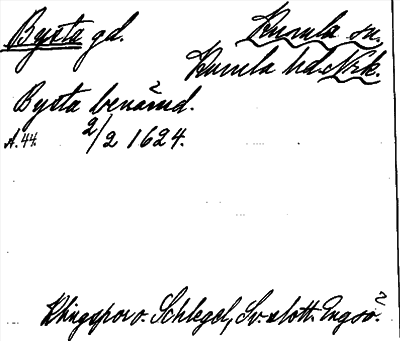 Bysta gd. Kumla sn.
Kumla hd. Nrk.
Bysta benämd.
A. 44. 2/2 1624.
Klingspor o. Schlegel, Sv. slott. Engsö?